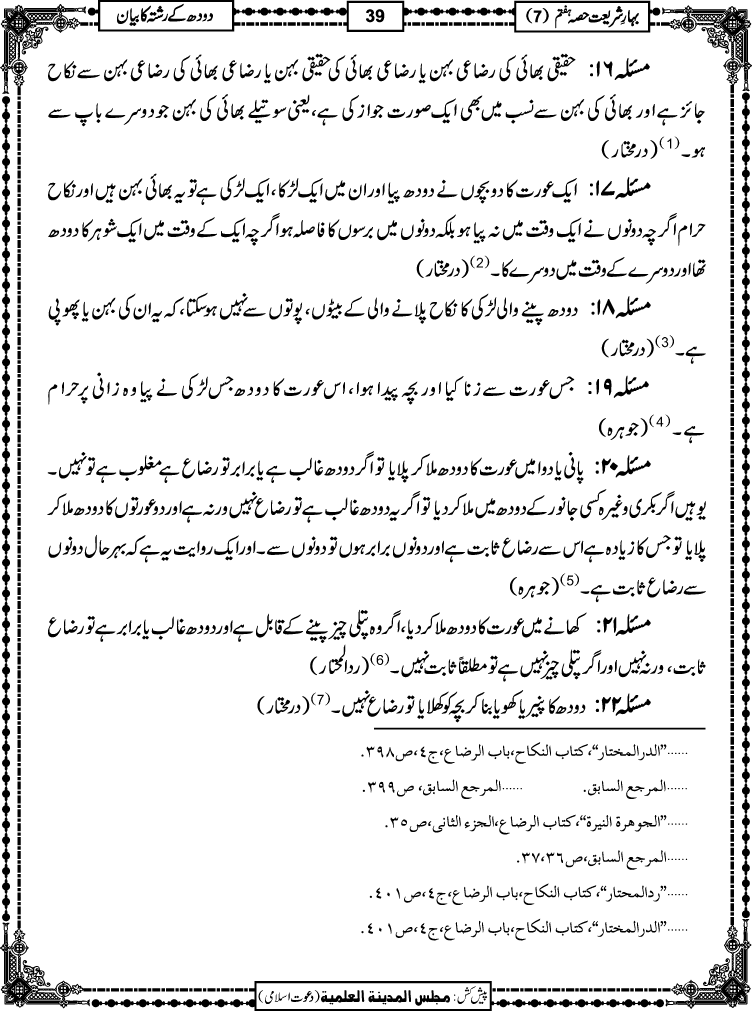 بہارِ شریعت حصہ ہفتم (7)
39
دودھ کے رشتہ کا بیان
مسئلہ ۱۶: حقیقی بھائی کی رضاعی بہن یا رضاعی بھائی کی حقیقی بہن یا رضاعی بھائی کی رضاعی بہن سے نکاح
جائز ہے اور بھائی کی بہن سے نسب میں بھی ایک صورت جواز کی ہے، یعنی سوتیلے بھائی کی بہن جو دوسرے باپ سے
ہو۔(1) (درمختار)
مسئلہ ۱۷: ایک عورت کا دو بچوں نے دودھ پیا اور ان میں ایک لڑکا، ایک لڑکی ہے تو یہ بھائی بہن ہیں اور نکاح
حرام اگرچہ دونوں نے ایک وقت میں نہ پیا ہو بلکہ دونوں میں برسوں کا فاصلہ ہو اگرچہ ایک کے وقت میں ایک شوہر کا دودھ
تھا اور دوسرے کے وقت میں دوسرے کا۔(2) (درمختار)
مسئلہ ۱۸: دودھ پینے والی لڑکی کا نکاح پلانے والی کے بیٹوں، پوتوں سے نہیں ہوسکتا، کہ یہ ان کی بہن یا پھوپی
ہے۔(3) (درمختار)
مسئلہ ۱۹: جس عورت سے زنا کیا اور بچہ پیدا ہوا، اس عورت کا دودھ جس لڑکی نے پیا وہ زانی پر حرام
ہے۔(4) (جوہرہ)
مسئلہ ۲۰: پانی یا دوا میں عورت کا دودھ ملا کر پلایا تو اگر دودھ غالب ہے یا برابر تو رضاع ہے مغلوب ہے تو نہیں۔
یوہیں اگر بکری وغیرہ کسی جانور کے دودھ میں ملا کر دیا تو اگر یہ دودھ غالب ہے تو رضاع نہیں ورنہ ہے اور دو عورتوں کا دودھ ملا کر
پلایا تو جس کا زیادہ ہے اس سے رضاع ثابت ہے اور دونوں برابر ہوں تو دونوں سے۔ اور ایک روایت یہ ہے کہ بہرحال دونوں
سے رضاع ثابت ہے۔(5) (جوہرہ)
مسئلہ ۲۱: کھانے میں عورت کا دودھ ملا کر دیا، اگر وہ پتلی چیز پینے کے قابل ہے اور دودھ غالب یا برابر ہے تو رضاع
ثابت، ورنہ نہیں اور اگر پتلی چیز نہیں ہے تو مطلقاً ثابت نہیں۔(6) (ردالمحتار)
مسئلہ ۲۲: دودھ کا پنیر یا کھویا بنا کر بچہ کو کھلایا تو رضاع نہیں۔(7) (درمختار)
......"الدرالمختار"، کتاب النکاح، باب الرضاع، ج٤، ص٣٩٨.
......المرجع السابق. ......المرجع السابق، ص٣٩٩.
......"الجوهرة النيرة"، کتاب الرضاع، الجزء الثانی، ص٣٥.
......المرجع السابق، ص٣٦،٣٧.
......"ردالمحتار"، کتاب النکاح، باب الرضاع، ج٤، ص٤٠١.
......"الدرالمختار"، کتاب النکاح، باب الرضاع، ج٤، ص٤٠١.
پیش کش: مجلس المدینة العلمیة (دعوت اسلامی)